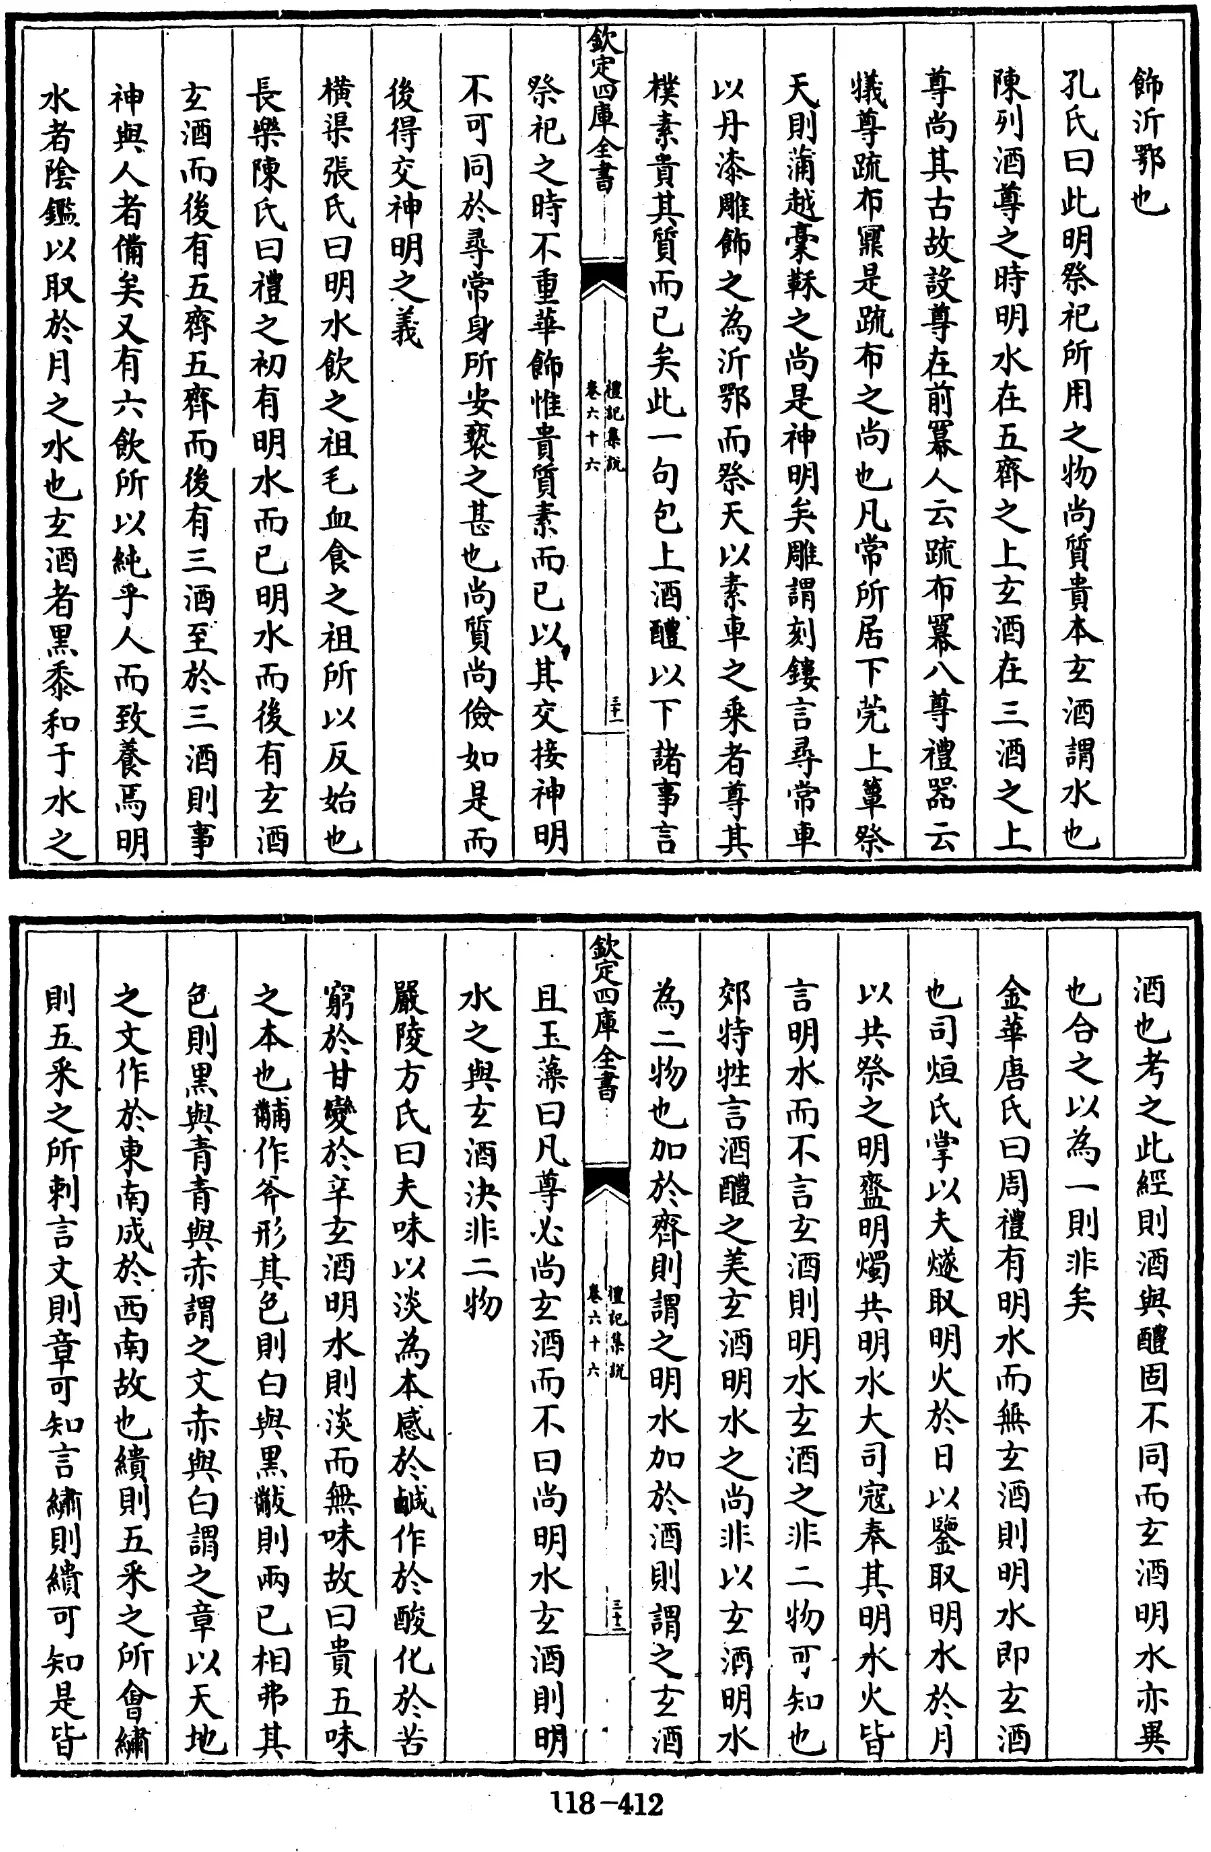 飾沂鄂也
孔氏曰此明祭祀所用之物尚質貴本玄酒謂水也
陳列酒尊之時明水在五齊之上玄酒在三酒之上
尊尚其古故設尊在前冪人云疏布冪八尊禮器云
犧尊疏布鼏是疏布之尚也凡常所居下莞上簟祭
天則蒲越藁鞂之尚是神明矣雕謂刻鏤言尋常車
以丹漆雕飾之為沂鄂而祭天以素車之乘者尊其
樸素貴其質而已矣此一句包上酒醴以下諸事言
欽定四庫全書
禮記集說
卷六十六
三十一
祭祀之時不重華飾惟貴質素而已以其交接神明
不可同於尋常身所安褻之甚也尚質尚儉如是而
後得交神明之義
橫渠張氏曰明水飲之祖毛血食之祖所以反始也
長樂陳氏曰禮之初有明水而已明水而後有玄酒
玄酒而後有五齊五齊而後有三酒至於三酒則事
神與人者備矣又有六飲所以純乎人而致養焉明
水者陰鑑以取於月之水也玄酒者黑黍和于水之
酒也考之此經則酒與醴固不同而玄酒明水亦異
也合之以為一則非矣
金華唐氏曰周禮有明水而無玄酒則明水即玄酒
也司烜氏掌以夫燧取明火於日以鑒取明水於月
以共祭之明齍明燭共明水大司寇奉其明水火皆
言明水而不言玄酒則明水玄酒之非二物可知也
郊特牲言酒醴之美玄酒明水之尚非以玄酒明水
為二物也加於齊則謂之明水加於酒則謂之玄酒
欽定四庫全書
禮記集說
卷六十六
三十二
且玉藻曰凡尊必尚玄酒而不曰尚明水玄酒則明
水之與玄酒決非二物
嚴陵方氏曰夫味以淡為本感於鹹作於酸化於苦
窮於甘變於辛玄酒明水則淡而無味故曰貴五味
之本也黼作斧形其色則白與黑黻則兩已相弗其
色則黑與青青與赤謂之文赤與白謂之章以天地
之文作於東南成於西南故也繢則五采之所會繡
則五采之所刺言文則章可知言繡則繢可知是皆
118-412